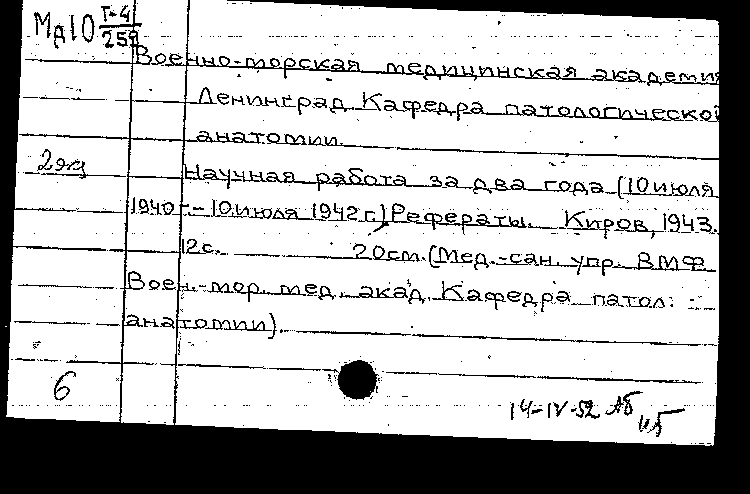 МД10 Г-4/259
Военно-морская медицинская академия
Ленинград Кафедра патологической
анатомии.
2 экз
Научная работа за два года (10 июля
1940 г.- 10 июля 1942 г.) Рефераты. Киров, 1943.
12 с. 20 см. (Мед.-сан. упр. ВМФ
Воен.-мор. мед. акад. Кафедра патол.
анатомии).
6
14-IV-52